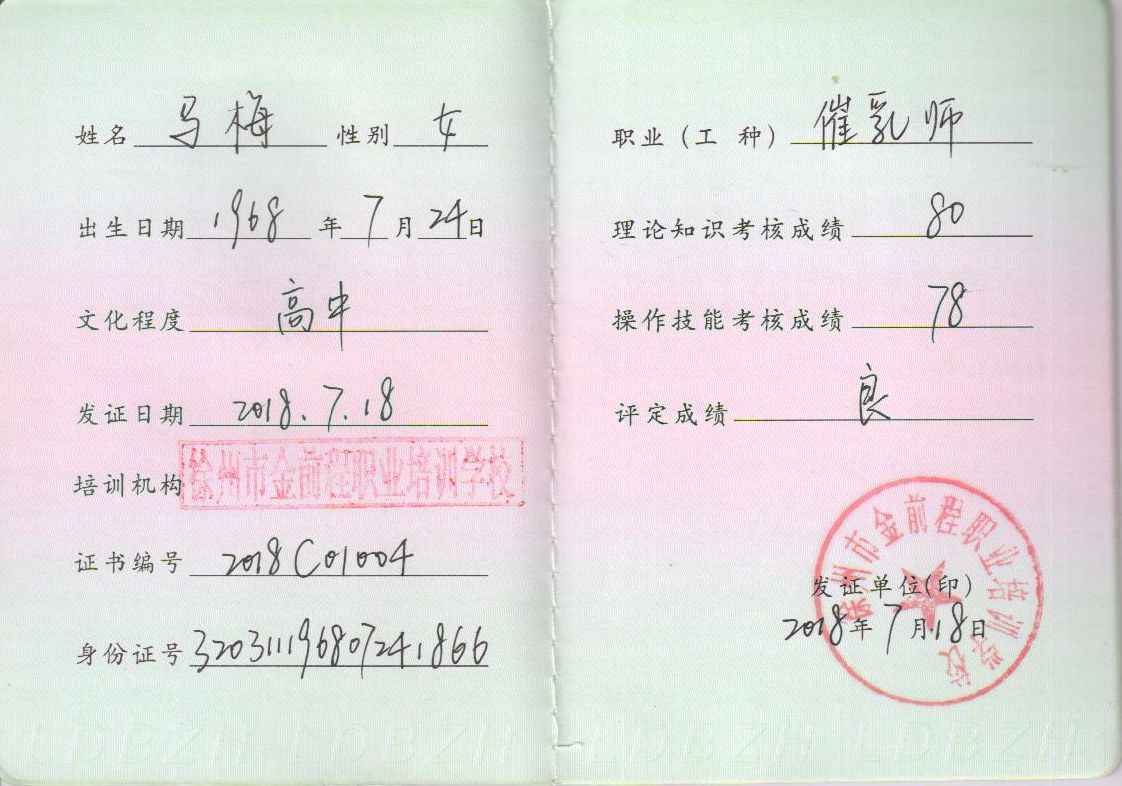 姓名 马梅 性别 女
出生日期 1968 年 7 月 24 日
文化程度 高中
发证日期 2018.7.18
培训机构 徐州市金前程职业培训学校
证书编号 2018C01004
身份证号 320311196807241866
职业（工 种） 催乳师
理论知识考核成绩 80
操作技能考核成绩 78
评定成绩 良
徐州市金前程职业培训学校
发证单位(印)
2018年7月18日
LDBZH LDBZH LDBZH LDBZH